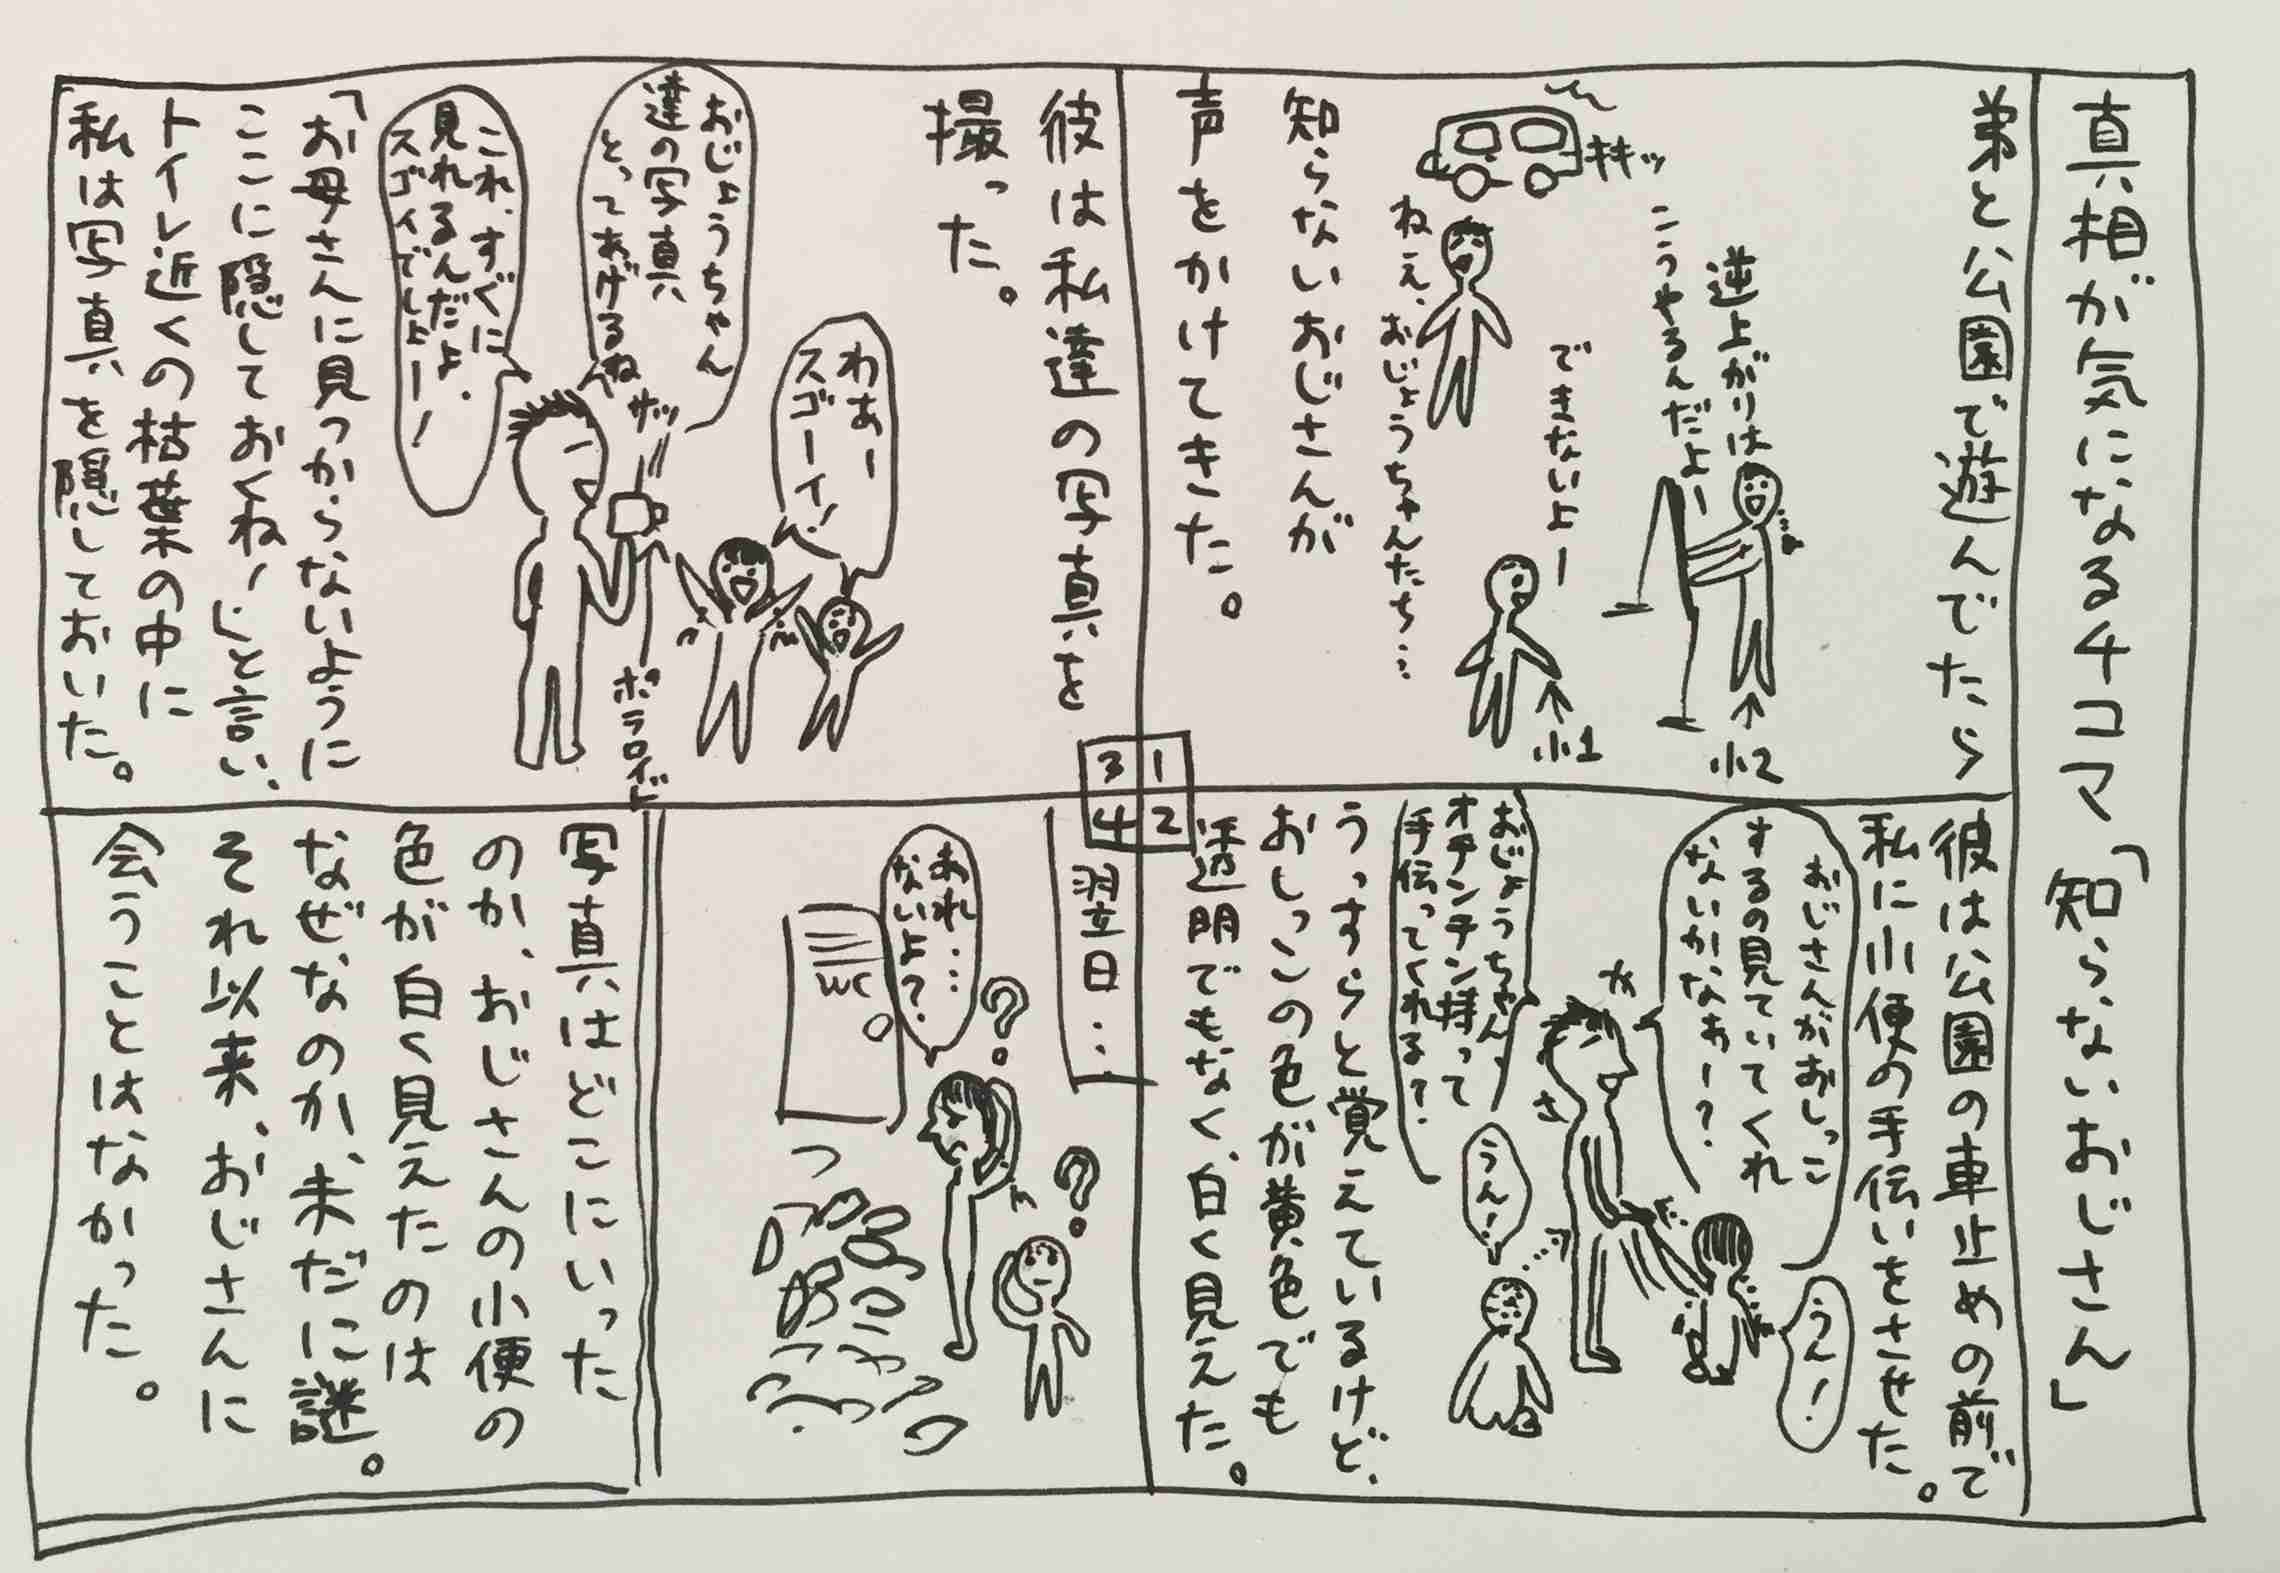 真相が気になる4コマ「知らないおじさん」
弟と公園で遊んでたら
逆上がりは
こうやるんだよー
小2
できないよー
小1
キキッ
ねえ、おじょうちゃんたち…
知らないおじさんが
声をかけてきた。
1
2
3
4
彼は公園の車止めの前で
私に小便の手伝いをさせた。
おじさんがおしっこ
するの見ていてくれ
ないかなぁー?
うん!
おじょうちゃん、
オチンチン持って
手伝ってくれる?
うん!
うっすらと覚えているけど、
おしっこの色が黄色でも
透明でもなく、白く見えた。
彼は私達の写真を
撮った。
わぁー
スゴーイ!
おじょうちゃん
達の写真
とってあげるね
これ、すぐに
見れるんだよ、
スゴイでしょー!
ポラロイド
「お母さんに見っからないように
ここに隠しておくね!」と言い、
トイレ近くの枯葉の中に
私は写真を隠しておいた。
翌日…
あれ…
ないよ?
WC
写真はどこにいった
のか、おじさんの小便の
色が白く見えたのは
なぜなのか、未だに謎。
それ以来、おじさんに
会うことはなかった。